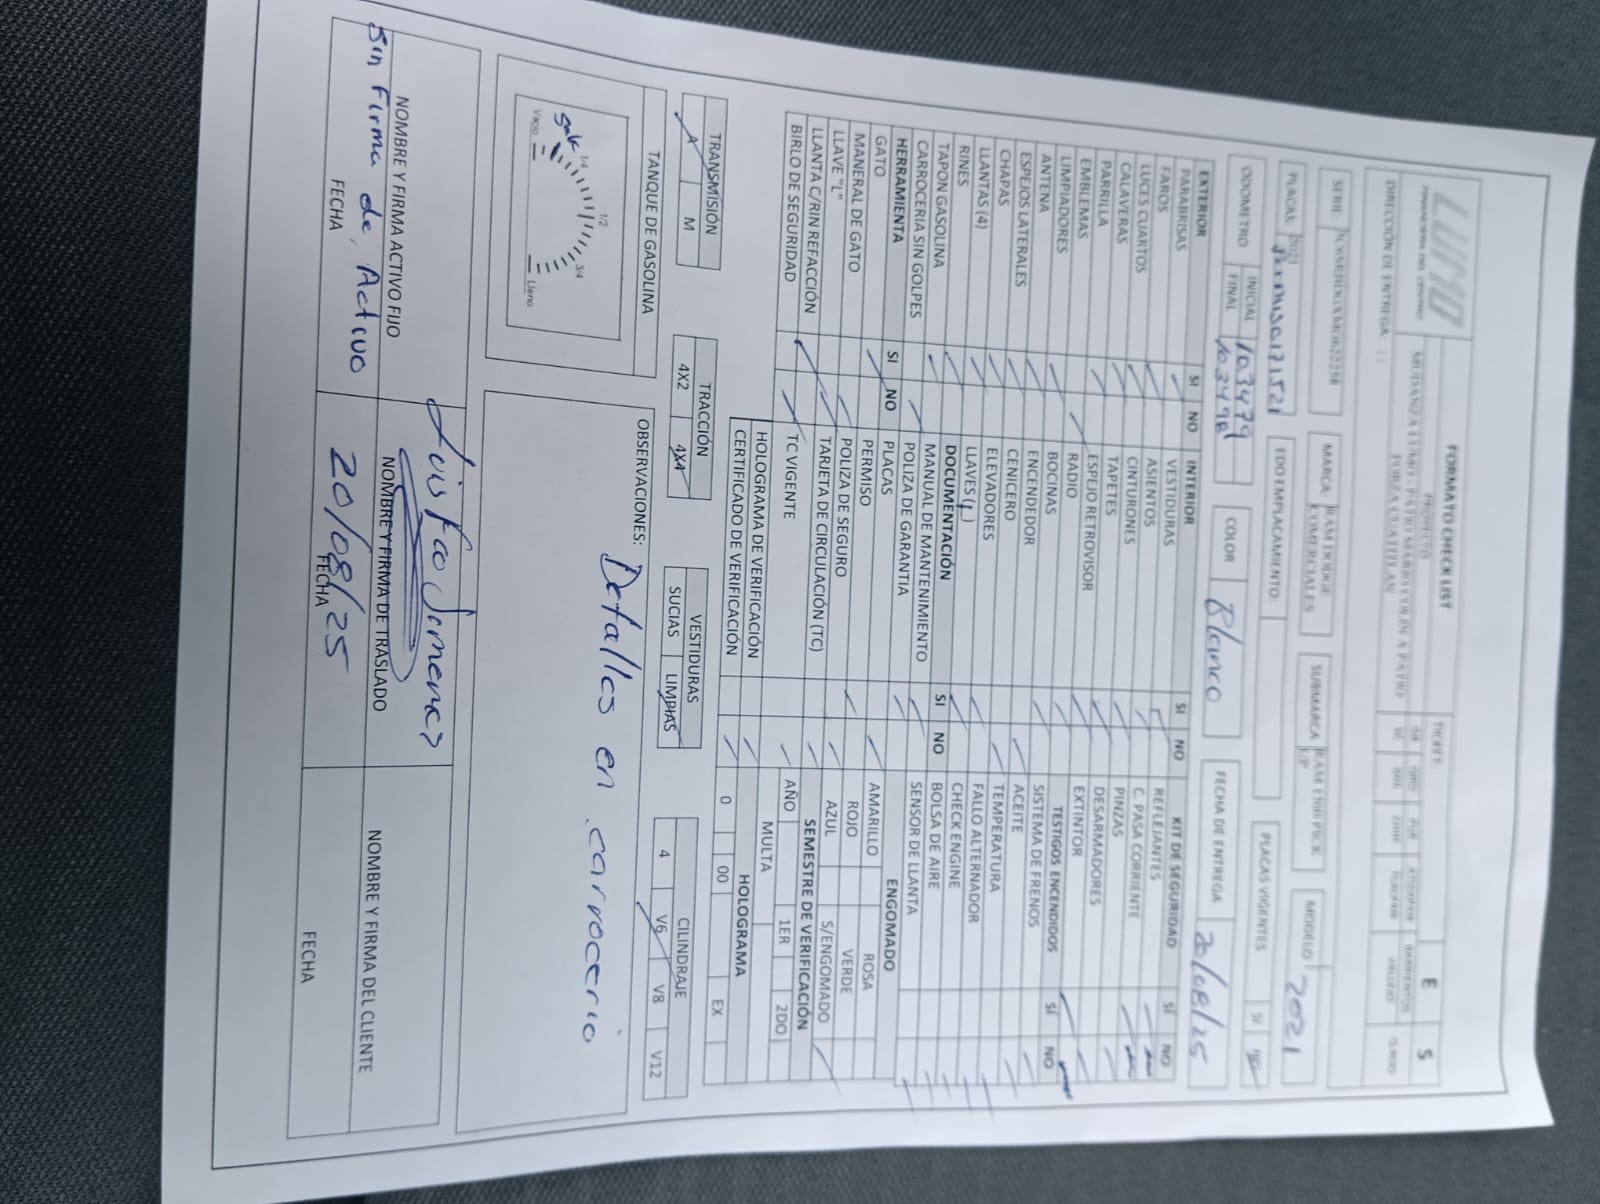 LUMO
FORMATO CHECK LIST
PROYECTO
DIRECCIÓN DE ENTREGA:
E S
SERIE
MARCA: RAM DODGE COMERCIALES
SUBMARCA
MODELO 2021
PLACAS
EDO EMPLACAMIENTO:
PLACAS VIGENTES SI NO
ODOMETRO INICIAL 103479
FINAL
COLOR Blanco
FECHA DE ENTREGA 20/08/25
EXTERIOR SI NO
PARABRISAS
FAROS
LUCES CUARTOS
CALAVERAS
PARRILLA
EMBLEMAS
LIMPIADORES
ANTENA
ESPEJOS LATERALES
CHAPAS
LLANTAS (4)
RINES
TAPON GASOLINA
CARROCERIA SIN GOLPES
HERRAMIENTA SI NO
GATO
MANERAL DE GATO
LLAVE "L"
LLANTA C/RIN REFACCIÓN
BIRLO DE SEGURIDAD
INTERIOR SI NO
VESTIDURAS
ASIENTOS
CINTURONES
TAPETES
ESPEJO RETROVISOR
RADIO
BOCINAS
ENCENDEDOR
CENICERO
ELEVADORES
LLAVES
DOCUMENTACIÓN SI NO
MANUAL DE MANTENIMIENTO
POLIZA DE GARANTIA
PLACAS
PERMISO
POLIZA DE SEGURO
TARJETA DE CIRCULACIÓN (TC)
TC VIGENTE
HOLOGRAMA DE VERIFICACIÓN
CERTIFICADO DE VERIFICACIÓN
KIT DE SEGURIDAD SI NO
REFLEJANTES
C. PASA CORRIENTE
PINZAS
DESARMADORES
EXTINTOR
TESTIGOS ENCENDIDOS SI NO
SISTEMA DE FRENOS
ACEITE
TEMPERATURA
FALLO ALTERNADOR
CHECK ENGINE
BOLSA DE AIRE
SENSOR DE LLANTA
ENGOMADO
AMARILLO ROSA
ROJO VERDE
AZUL S/ENGOMADO
SEMESTRE DE VERIFICACIÓN
AÑO 1ER 2DO
MULTA
HOLOGRAMA
0 00 EX
TRANSMISIÓN
A M
TRACCIÓN
4X2 4X4
VESTIDURAS
SUCIAS LIMPIAS
CILINDRAJE
4 V6 V8 V12
TANQUE DE GASOLINA
1/4 1/2 3/4
Vacio Lleno
OBSERVACIONES: Detalles en carroceria
Sin Firma de Activo
NOMBRE Y FIRMA ACTIVO FIJO
FECHA
Luis
NOMBRE Y FIRMA DE TRASLADO
20/08/25
FECHA
NOMBRE Y FIRMA DEL CLIENTE
FECHA